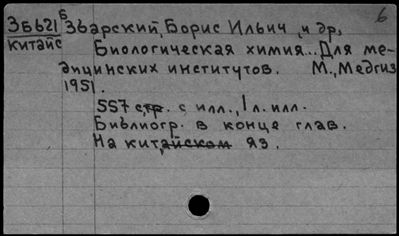 6
3Б621 Б Збарский, Борис Ильич и др.
китайс Биологическая химия... Для ме-
дицинских институтов. М., Медгиз
1951.
557 стр. с илл., 1 л. илл.
Библиогр. в конце глав.
На китайском яз.